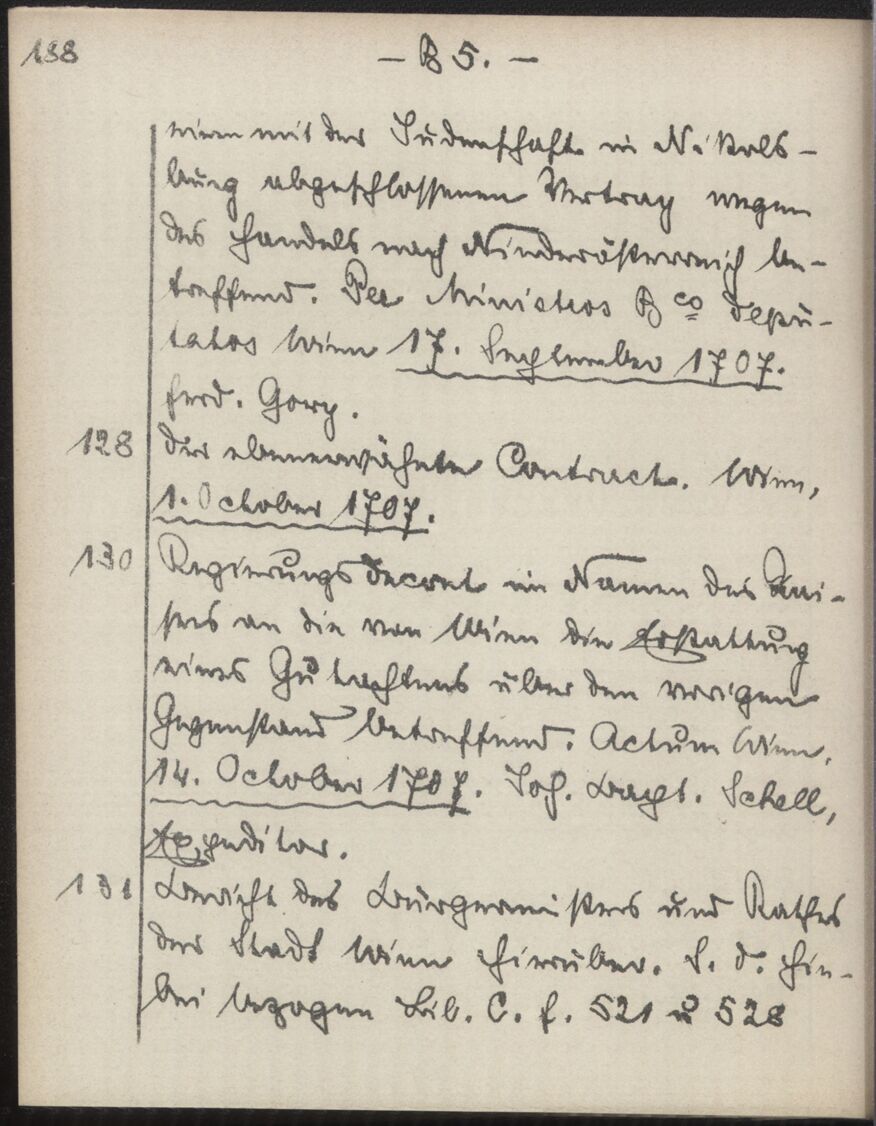 188
– B 5. –
einen mit der Judenschaft in Nikols-
burg abgeschlossenen Vertrag wegen
des Handels nach Niederösterreich be-
treffend. Per Ministros Bco Depu-
tatos Wien 17. September 1707.
Ferd. Gory.
128 Der ebenerwähnte Contract. Wien,
1. October 1707.
130 Regierungs Decret im Namen des Kai-
sers an die von Wien die Erstattung
eines Gutachtens über den vorigen
Gegenstand betreffend. Actum Wien,
14. October 1707. Joh. Bapt. Schell,
Expeditor.
131 Bericht des Bürgermeisters und Rathes
der Stadt Wien hierüber. S. d. Hie-
bei bezogen Lib. C. f. 521 u 528